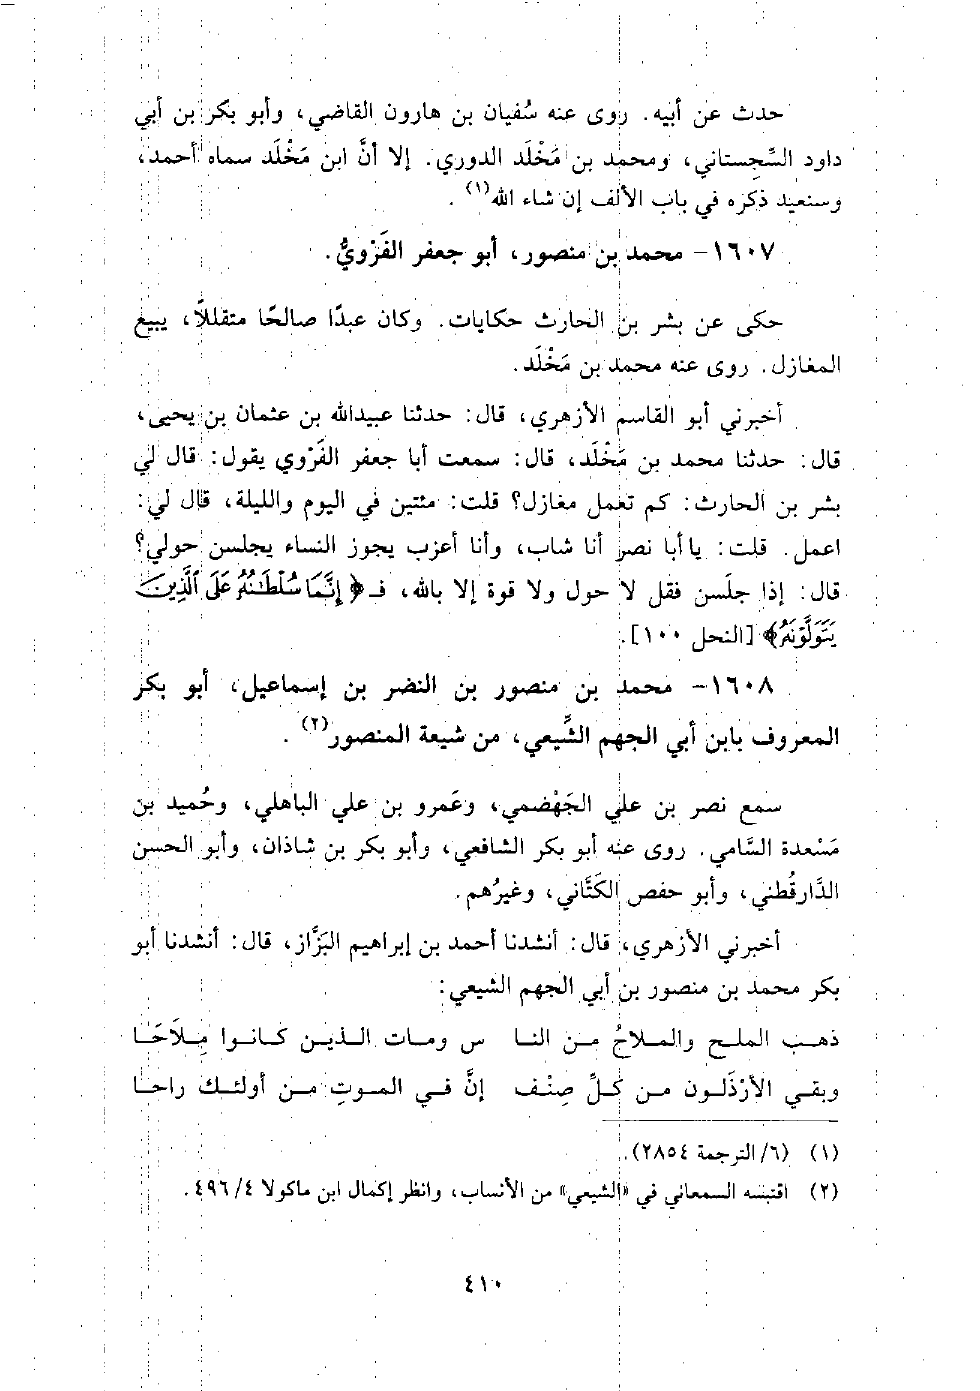 حدث عن أبيه. روى عنه سُفيان بن هارون القاضي، وأبو بكر بن أبي
داود السِّجستاني، ومحمد بن مَخْلَد الدوري. إلا أنَّ ابن مَخْلَد سماه أحمد،
وسنعيد ذكره في باب الألف إن شاء الله(١).
١٦٠٧- محمد بن منصور، أبو جعفر الفَرْويُّ.
حكى عن بشر بن الحارث حكايات. وكان عبدًا صالحًا متقللًا، يبيع
المغازل. روى عنه محمد بن مَخْلَد.
أخبرني أبو القاسم الأزهري، قال: حدثنا عبيدالله بن عثمان بن يحيى،
قال: حدثنا محمد بن مَخْلَد، قال: سمعت أبا جعفر الفَرْوي يقول: قال لي
بشر بن الحارث: كم تعمل مغازل؟ قلت: مئتين في اليوم والليلة، قال لي:
اعمل. قلت: يا أبا نصر أنا شاب، وأنا أعزب يجوز النساء يجلسن حولي؟
قال: إذا جلَسن فقل لا حول ولا قوة إلا بالله، فـ﴿إِنَّمَا سُلْطَٰنُهُۥ عَلَى ٱلَّذِينَ
يَتَوَلَّوْنَهُۥ﴾ [النحل ١٠٠].
١٦٠٨- محمد بن منصور بن النضر بن إسماعيل، أبو بكر
المعروف بابن أبي الجهم الشِّيعي، من شيعة المنصور(٢).
سمع نصر بن علي الجَهْضمي، وعَمرو بن علي الباهلي، وحُميد بن
مَسْعدة السَّامي. روى عنه أبو بكر الشافعي، وأبو بكر بن شاذان، وأبو الحسن
الدَّارقُطني، وأبو حفص الكَتَّاني، وغيرُهم.
أخبرني الأزهري، قال: أنشدنا أحمد بن إبراهيم البَزَّاز، قال: أنشدنا أبو
بكر محمد بن منصور بن أبي الجهم الشيعي:
ذهـب الملـح والمـلاحُ مـن النـا س ومـات الـذيـن كـانـوا مِـلَاحَـا
وبقـي الأرْذَلـون مـن كـلِّ صِنْـف إنَّ فـي المـوتِ مـن أولئـك راحـا
(١) (٦/ الترجمة ٢٨٥٤).
(٢) اقتبسه السمعاني في «الشيعي» من الأنساب، وانظر إكمال ابن ماكولا ٤/ ٤٩٦.
٤١٠